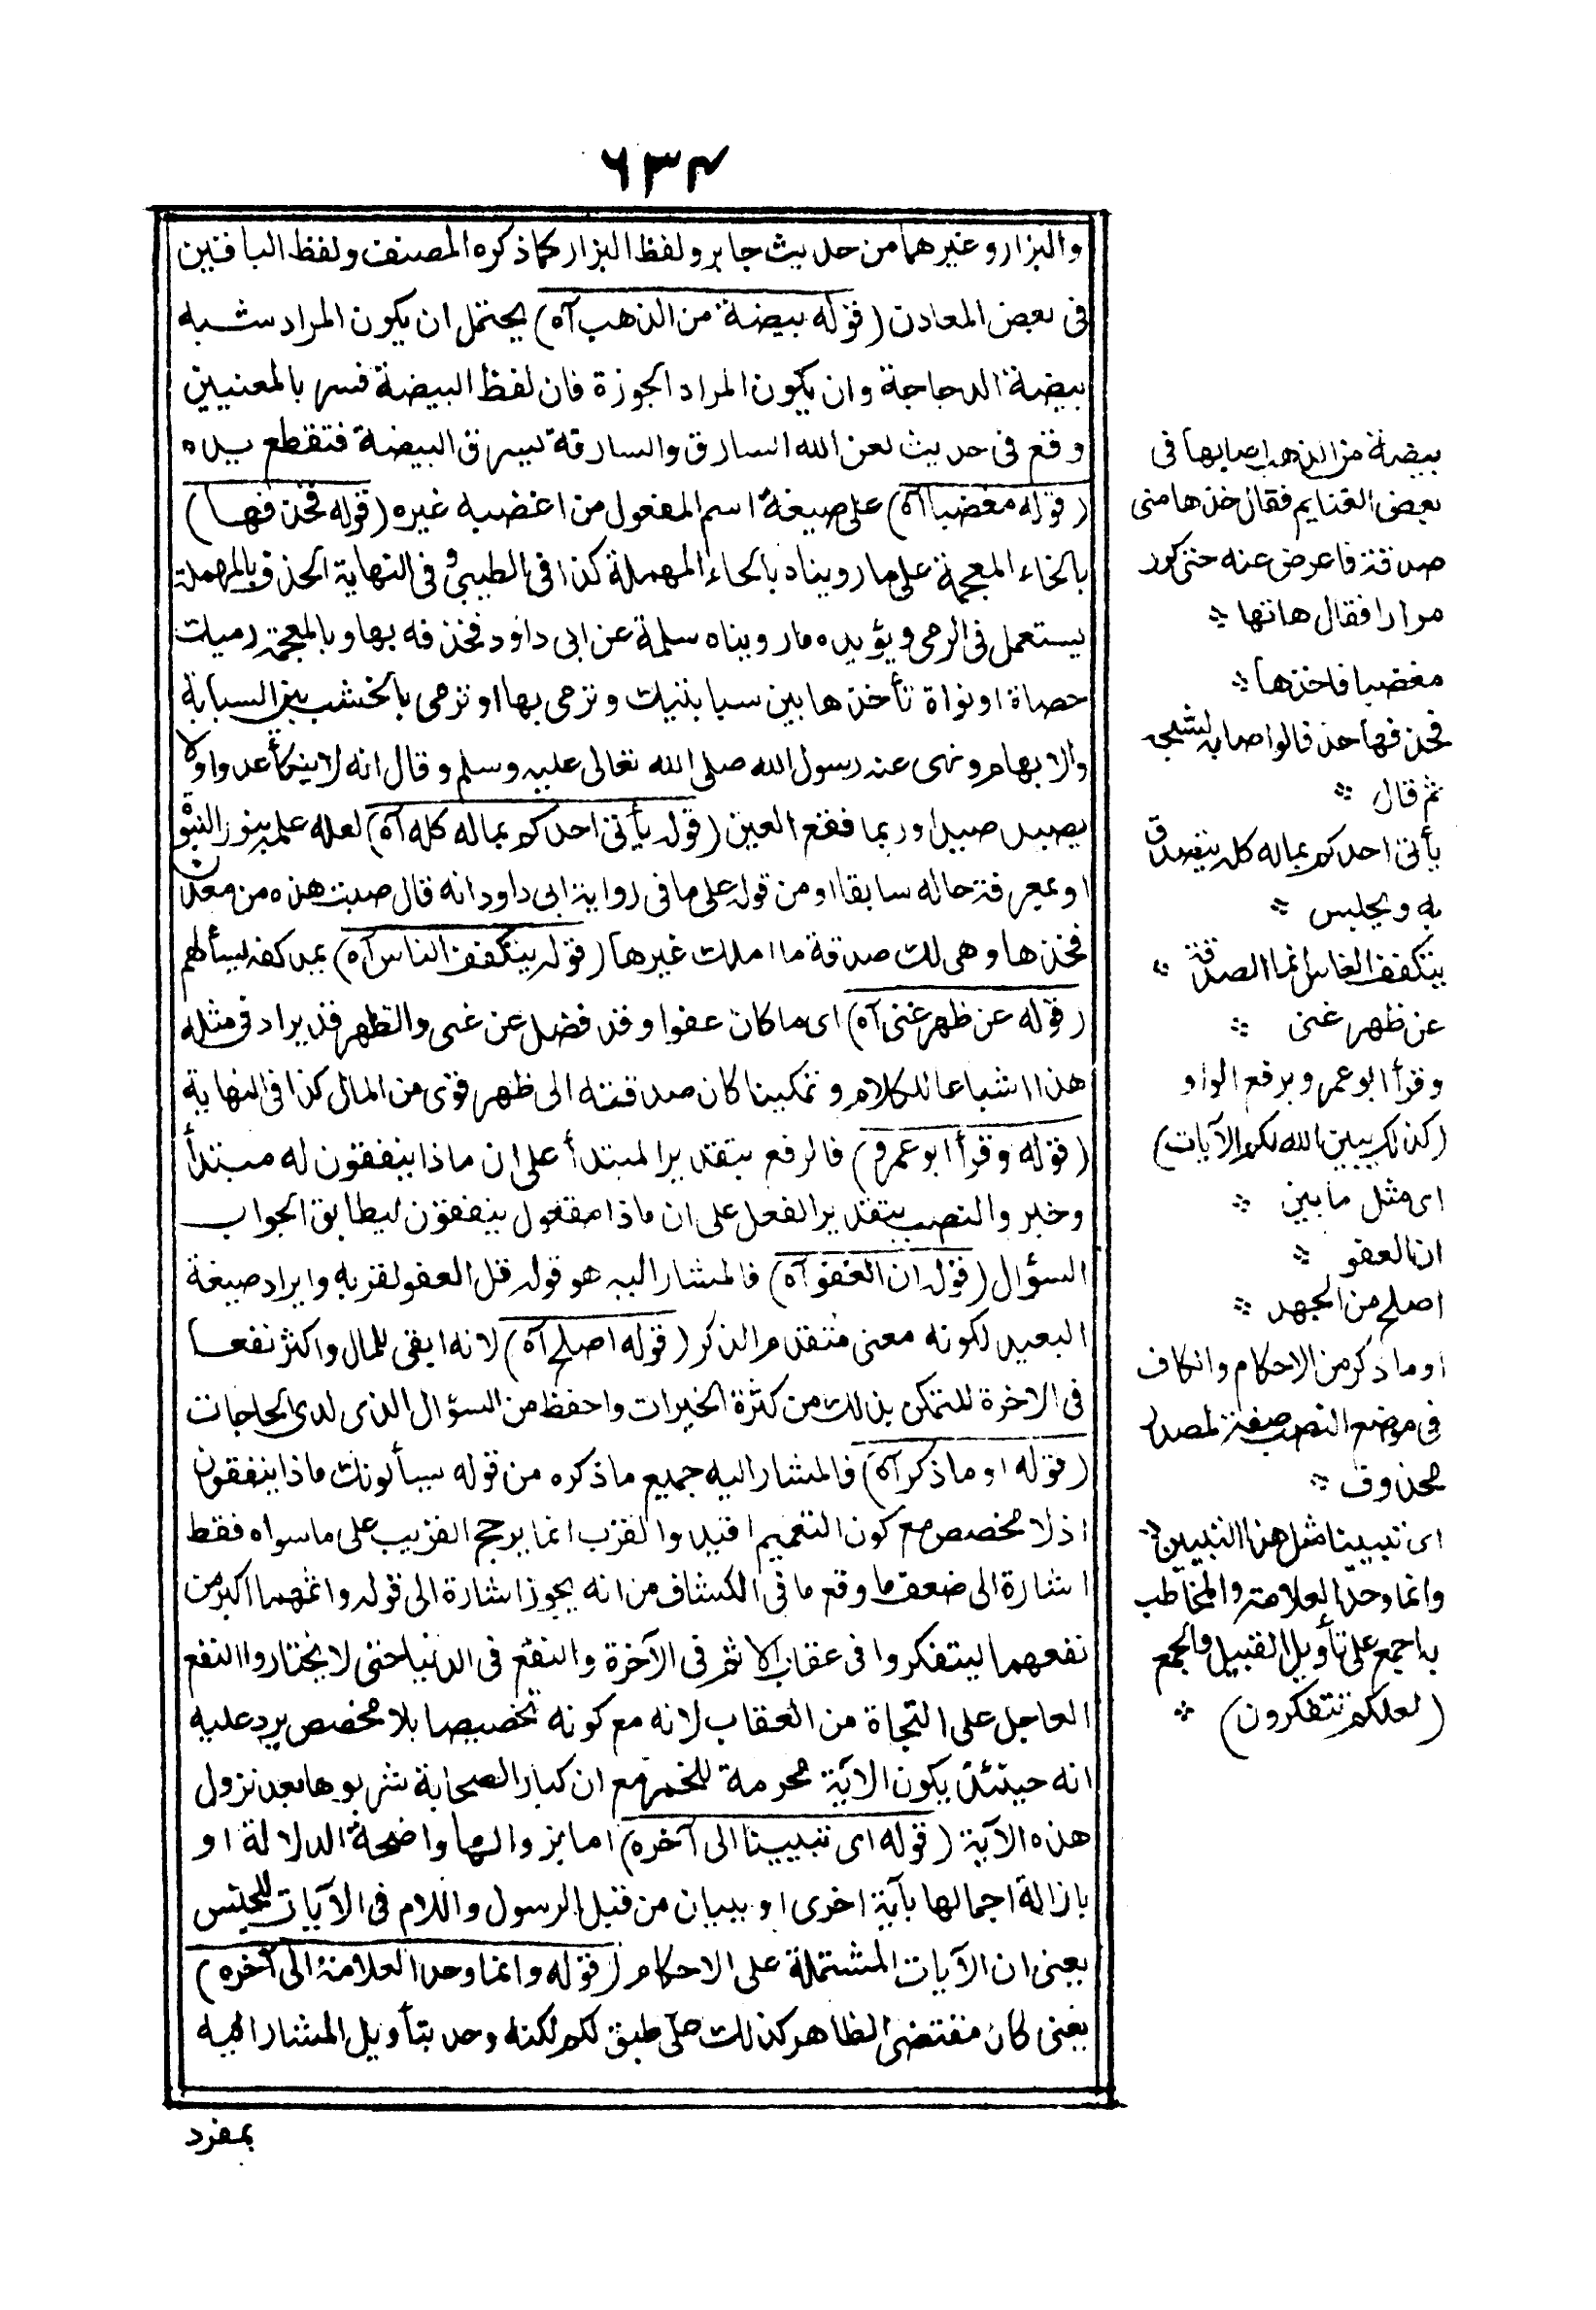 ٦٣٤
والبزار وغيرهما من حديث جابر ولفظ البزار كما ذكره المصنف ولفظ الباقين
فى بعض المعادن (قوله بيضة من الذهب آه) يحتمل ان يكون المراد شبه
بيضة الدجاجة وان يكون المراد الجوزة فان لفظ البيضة فسر بالمعنيين
وقع فى حديث لعن الله السارق والسارقة يسرق البيضة فتقطع يده
(قوله مغضبا آه) على صيغة اسم المفعول من اغضبه غيره (قوله فخذفها)
بالخاء المعجمة على ما رويناه بالحاء المهملة كذا فى الطيبى وفى النهاية الحذف بالمهملة
يستعمل فى الرمى ويؤيده ما رويناه سلمة عن ابى داود فخذفه بها وبالمعجمة رميك
حصاة او نواة تأخذها بين سبابتيك وترمى بها او ترمى بالخشب بين السبابة
والابهام ونهى عنه رسول الله صلى الله تعالى عليه وسلم وقال انه لا ينكأ عدوا ولا
يصيد صيدا وربما فقع العين (قوله يأتى احدكم بماله كله آه) لعله علم بنور النبوة
او بمعرفة حاله سابقا او من قوله على ما فى رواية ابى داود انه قال صبت هذه من معدن
فخذها وهى لك صدقة ما املك غيرها (قوله يتكفف الناس آه) يمد كفه ليسألهم
(قوله عن ظهر غنى آه) اى ما كان عفوا وقد فضل عن غنى والظهر قد يراد فى مثله
هذا اشباعا للكلام وتمكينا كان صدقته الى ظهر قوى من المال كذا فى النهاية
(قوله وقرأ ابو عمرو) فالرفع بتقدير المبتدأ على ان ماذا ينفقون له مبتدأ
وخبر والنصب بتقدير الفعل على ان ماذا مفعول ينفقون ليطابق الجواب
السؤال (قوله ان العفو آه) فالمشار اليه هو قوله قل العفو لقربه وايراد صيغة
البعيد لكونه معنى متقدم الذكر (قوله اصلح آه) لانه ابقى للمال واكثر نفعا
فى الاخرة للتمكن بذلك من كثرة الخيرات واحفظ من السؤال الذى لدى الحاجات
(قوله او ما ذكر آه) فالمشار اليه جميع ما ذكره من قوله يسألونك ماذا ينفقون
اذ لا مخصص مع كون التعميم افيد والقرب انما يرجح القريب على ما سواه فقط
اشارة الى ضعف ما وقع ما فى الكشاف من انه يجوز اشارة الى قوله واثمهما اكبر من
نفعهما ليتفكروا فى عقاب الاثم فى الآخرة والنفع فى الدنيا حتى لا يختاروا النفع
العاجل على النجاة من العقاب لانه مع كونه تخصيصا بلا مخصص يرد عليه
انه حينئذ يكون الآية محرمة للخمر مع ان كبار الصحابة شربوها بعد نزول
هذه الآية (قوله اى تبيينا الى آخره) اما بنزولها واضحة الدلالة او
بازالة اجمالها بآية اخرى او ببيان من قبل الرسول واللام فى الآيات للجنس
يعنى ان الآيات المشتملة على الاحكام (قوله وانما وحد العلامة الى آخره)
يعنى كان مقتضى الظاهر كذلك على طبق لكم لكنه وحد بتأويل المشار اليه
بمفرد
بيضة من الذهب اصابها فى
بعض الغنايم فقال خذها منى
صدقة فاعرض عنه حتى كرر
مرارا فقال هاتها
مغضبا فاخذها
فخذفها حذفا لو اصابه لشجه
ثم قال
يأتى احدكم بماله كله يتصدق
به ويجلس
يتكفف الناس انما الصدقة
عن ظهر غنى
وقرأ ابو عمرو برفع الواو
(كذلك يبين الله لكم الآيات)
اى مثل ما بين
ان العفو
اصلح من الجهد
او ما ذكر من الاحكام والكاف
فى موضع النصب صفة لمصدر
محذوف
اى تبيينا مثل هذا التبيين
وانما وحد العلامة والمخاطب
به اجمع على تأويل القبيل والجمع
(لعلكم تتفكرون)